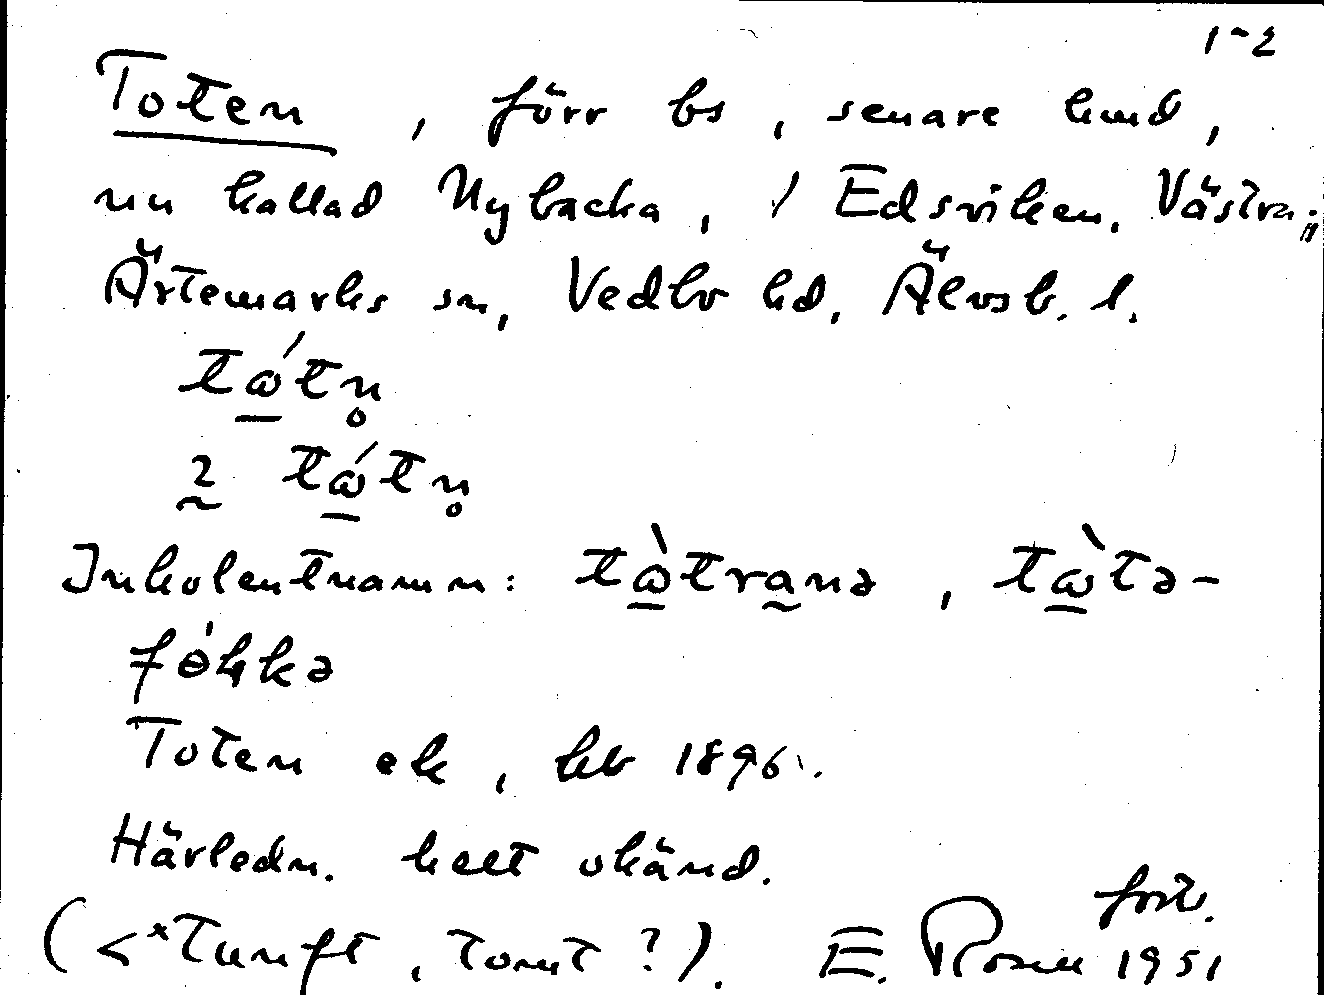 1-2
Toten, förr bs, senare hmd,
nu kallad Nybacka, i Edsviken, Västra
Ärtemarks sn, Vedbo hd, Älvsb. l.
tώ̲tn̥
2̰ tώ̲tn̥
Inkolentnamn: tὼ̲tra̰nə, tὼ̲tə-
fó̵lkə
Toten ek, kb 1896.
Härledn. helt okänd.
forts.
(< *Tunft, tomt?). E. Rosen 1951